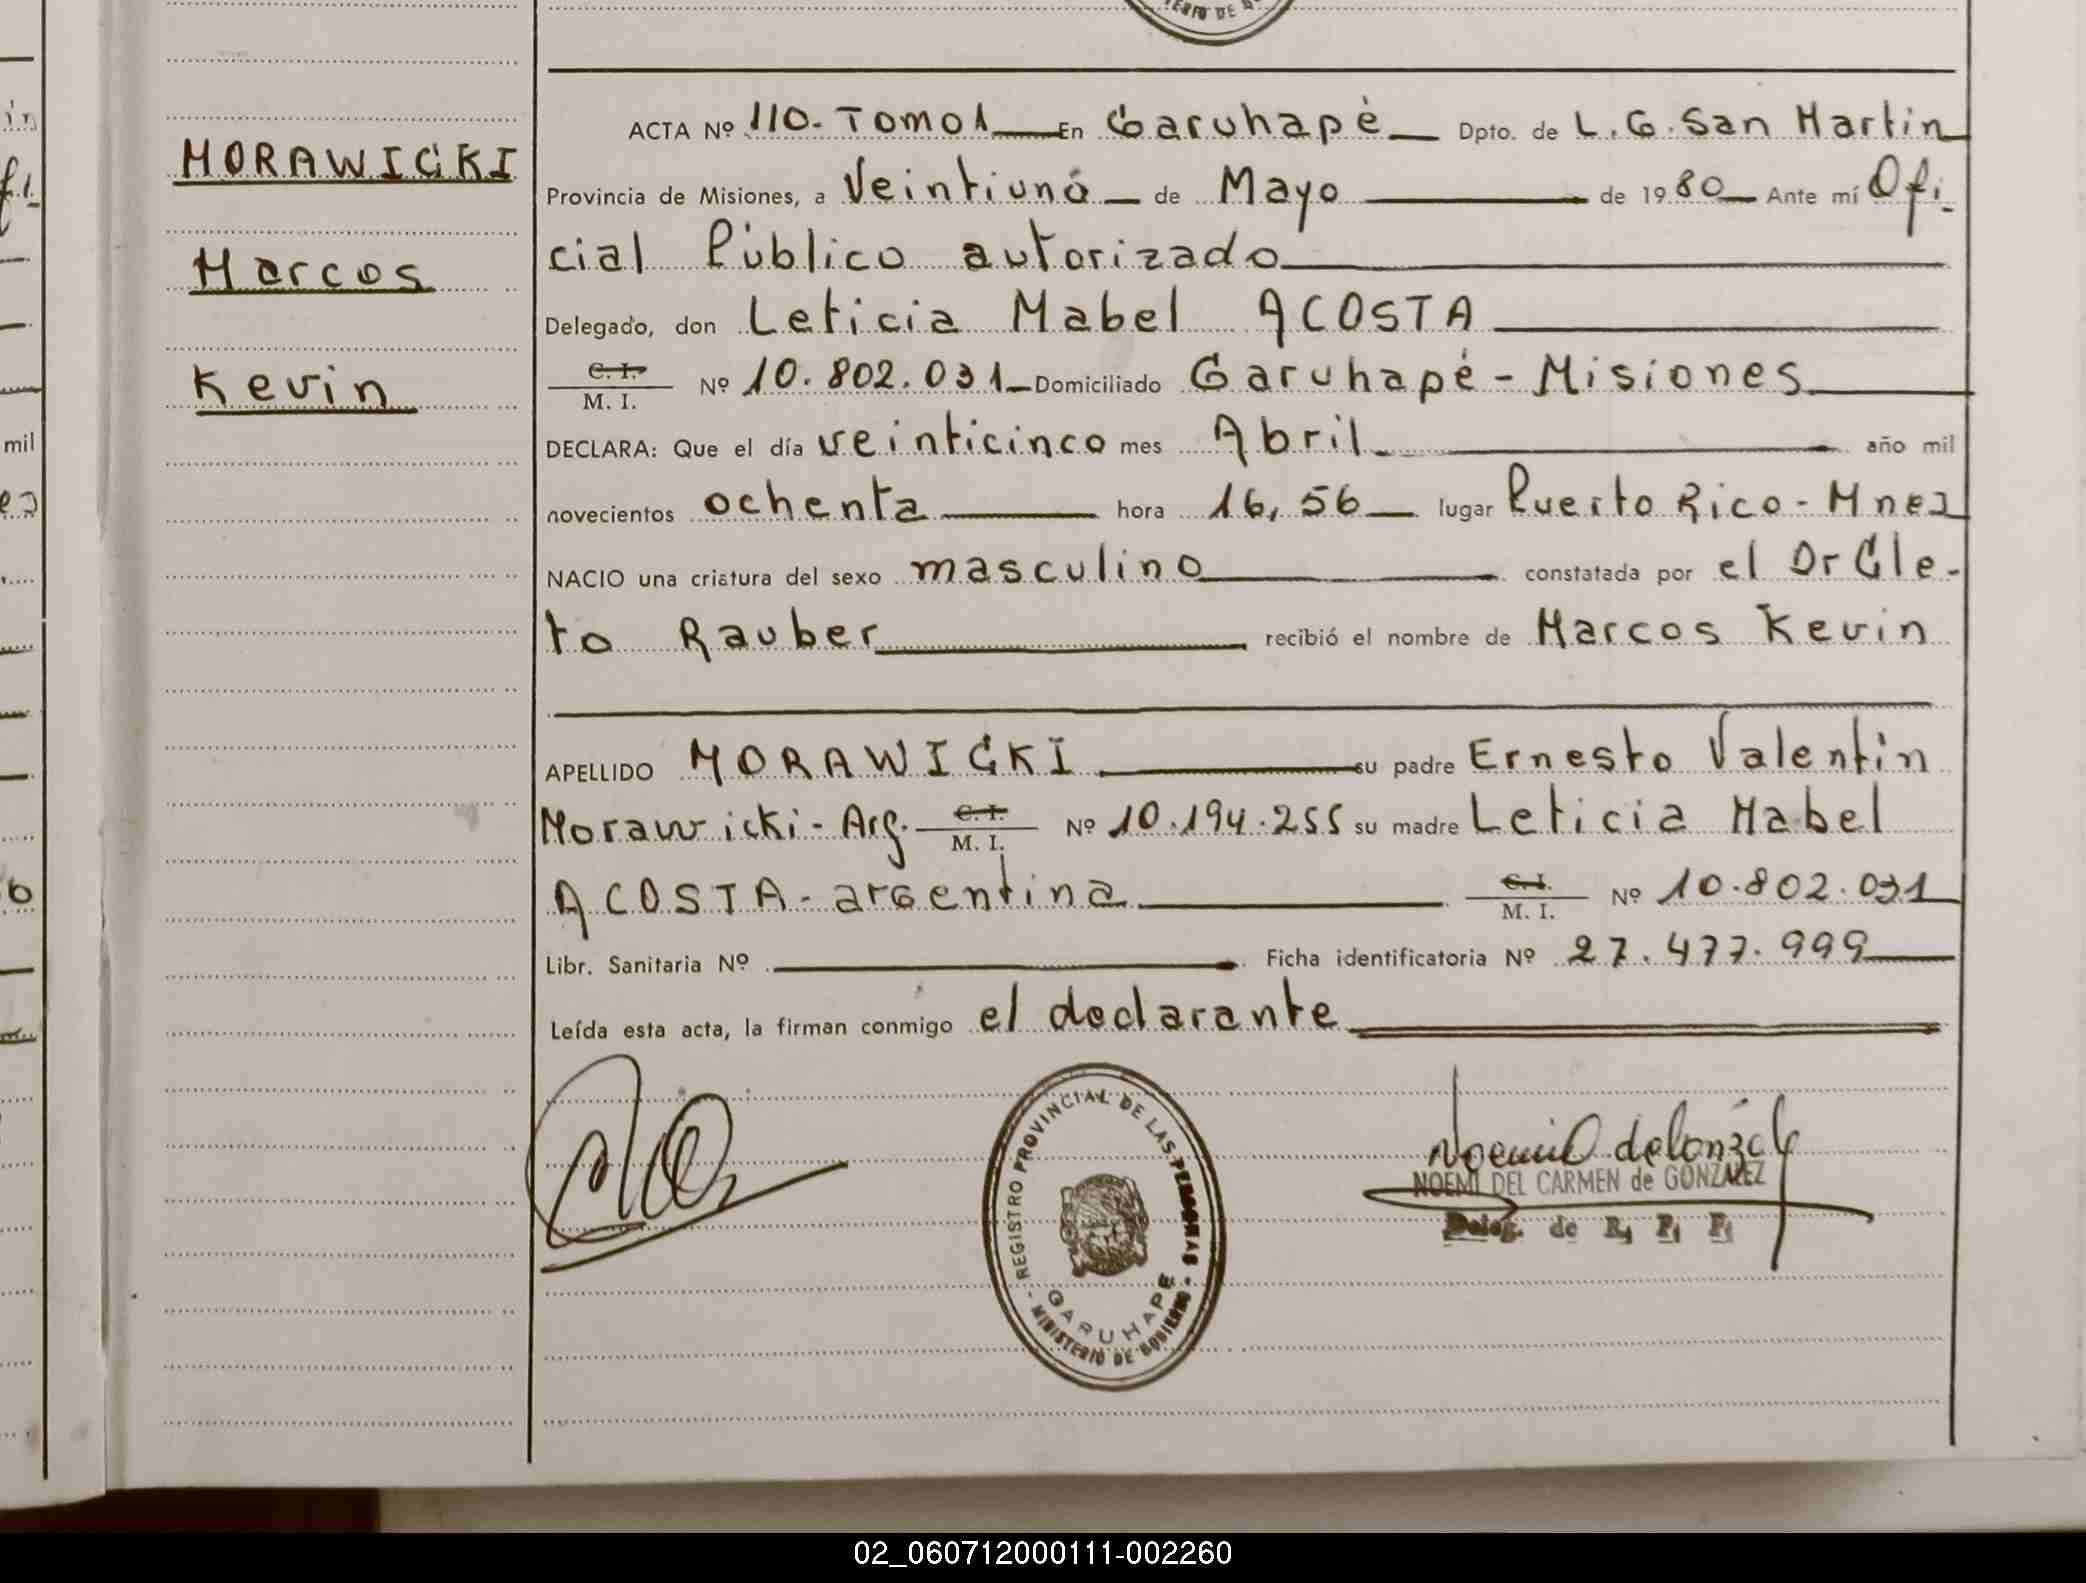 MINISTERIO DE GO
MORAWICKI
Marcos
Kevin
ACTA Nº 110. Tomo 1 En Garuhapé Dpto. de L.G. San Martín
Provincia de Misiones, a Veintiuno de Mayo de 1980 Ante mí Ofi
cial Público autorizado
Delegado, don Leticia Mabel ACOSTA
C. I.
M. I. Nº 10.802.031 Domiciliado Garuhapé - Misiones
DECLARA: Que el día veinticinco mes Abril año mil
novecientos ochenta hora 16,56 lugar Puerto Rico - Mnes
NACIO una criatura del sexo masculino constatada por el Dr Cle-
to Rauber recibió el nombre de Marcos Kevin
APELLIDO MORAWICKI su padre Ernesto Valentín
Morawicki - Arg. C. I. M. I. Nº 10.194.255 su madre Leticia Mabel
ACOSTA - argentina C. I. M. I. Nº 10.802.031
Libr. Sanitaria Nº Ficha identificatoria Nº 27.477.999
Leída esta acta, la firman conmigo el declarante
REGISTRO PROVINCIAL DE LAS PERSONAS
GARUHAPE
MINISTERIO DE GOBIERNO
NOEMI DEL CARMEN de GONZALEZ
Deleg. de R. P. P.
mil
02_060712000111-002260